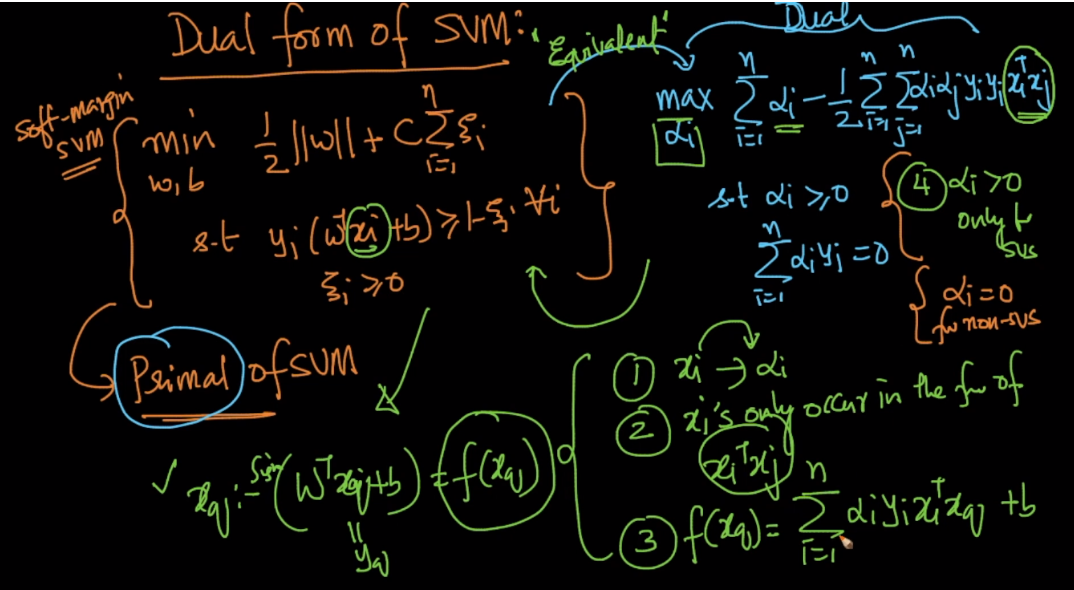 Dual form of SVM:
"Equivalent"
Dual
soft-margin
SVM
min
w, b
1/2 ||w|| + C ∑_{i=1}^{n} ξi
s.t yi (wᵀxi + b) ≥ 1 - ξi ∀i
ξi ≥ 0
max
αi
∑_{i=1}^{n} αi - 1/2 ∑_{i=1}^{n} ∑_{j=1}^{n} αi αj yi yj xiᵀxj
s.t αi ≥ 0
∑_{i=1}^{n} αi yi = 0
④ αi > 0
only for
SVs
αi = 0
for non-SVs
Primal of SVM
① xi → αi
② xi's only occur in the form of
xiᵀxj
③ f(xq) = ∑_{i=1}^{n} αi yi xiᵀxq + b
✓ xq :- sign (wᵀxq + b) = f(xq)
=
yq